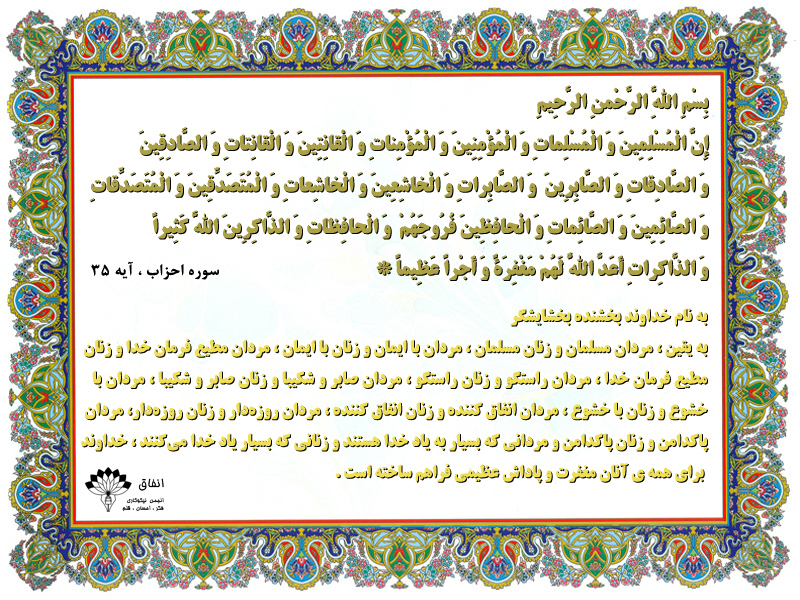 بِسْمِ اللهَِّ الرَّحْمنِ الرَّحِيمِ
إِنَّ الْمُسْلِمِينَ وَ الْمُسْلِماتِ وَ الْمُؤْمِنِينَ وَ الْمُؤْمِناتِ وَ الْقانِتِينَ وَ الْقانِتاتِ وَ الصَّادِقِينَ
وَ الصَّادِقاتِ وَ الصَّابِرِينَ وَ الصَّابِراتِ وَ الْخاشِعِينَ وَ الْخاشِعاتِ وَ الْمُتَصَدِّقِينَ وَ الْمُتَصَدِّقاتِ
وَ الصَّائِمِينَ وَ الصَّائِماتِ وَ الْحافِظِينَ فُرُوجَهُمْ وَ الْحافِظاتِ وَ الذَّاكِرِينَ اللهََّ كَثِيراً
وَ الذَّاكِراتِ أَعَدَّ اللهَُّ لَهُمْ مَغْفِرَةً وَ أَجْراً عَظِيماً * سوره احزاب ، آیه ۳۵
به نام خداوند بخشنده بخشایشگر
به یقین ، مردان مسلمان و زنان مسلمان ، مردان با ایمان و زنان با ایمان ، مردان مطیع فرمان خدا و زنان
مطیع فرمان خدا ، مردان راستگو و زنان راستگو ، مردان صابر و شکیبا و زنان صابر و شکیبا ، مردان با
خشوع و زنان با خشوع ، مردان انفاق کننده و زنان انفاق کننده ، مردان روزه‌دار و زنان روزه‌دار، مردان
پاکدامن و زنان پاکدامن و مردانی که بسیار به یاد خدا هستند و زنانی که بسیار یاد خدا می‌کنند ، خداوند
برای همه ی آنان مغفرت و پاداش عظیمی فراهم ساخته است .
انفاق
انجمن نیکوکاری
فکر ، احسان ، قلم